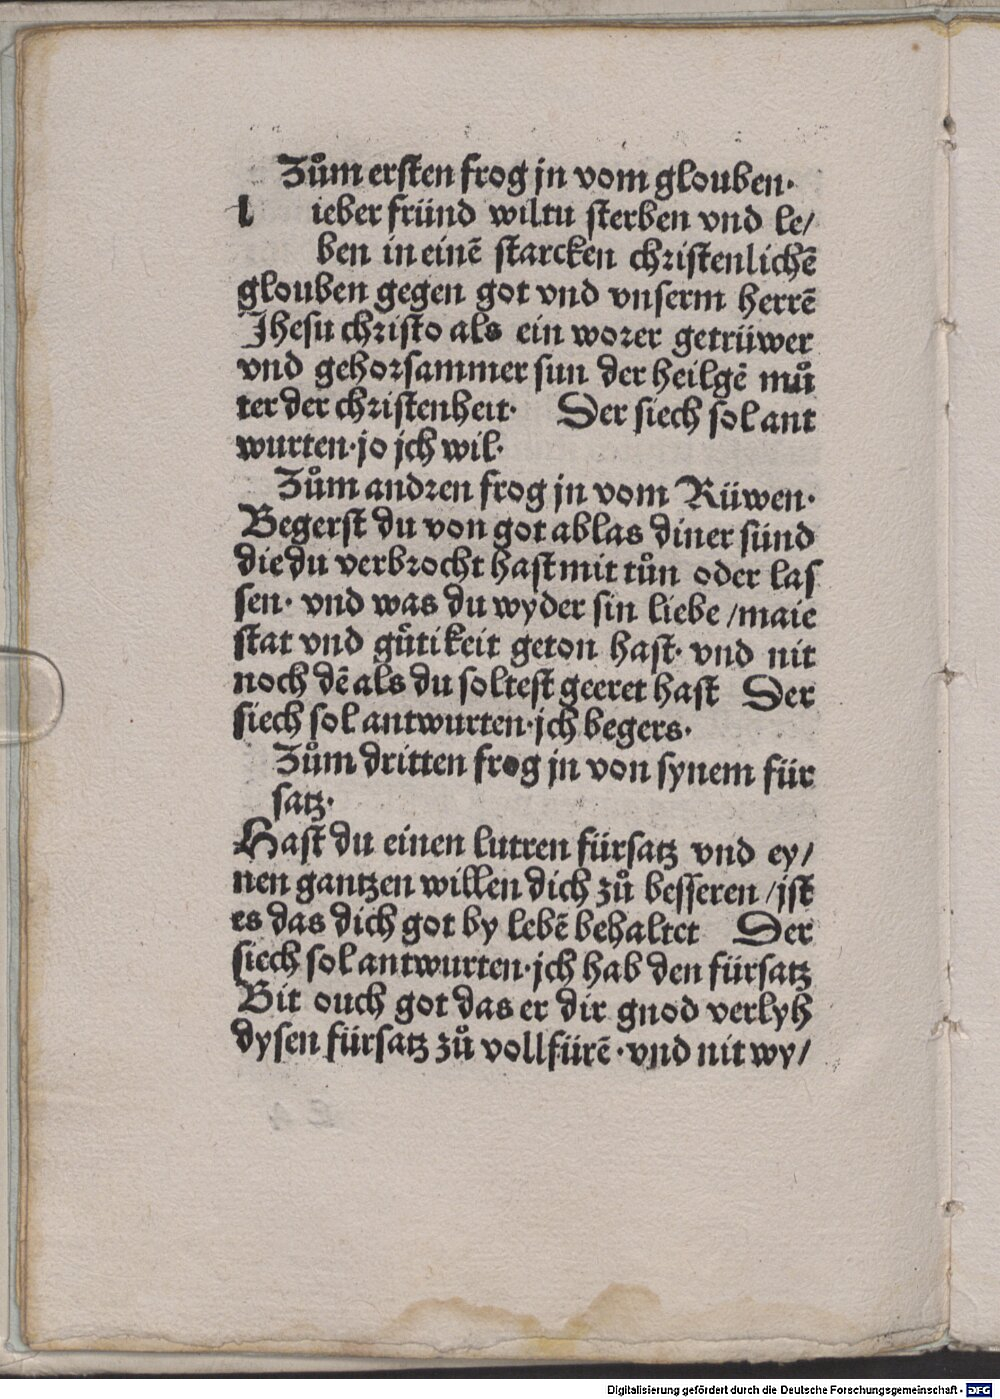 Zům ersten frog jn vom glouben·
l ieber fründ wiltu sterben vnd le/
ben in einē starcken christenlichē
glouben gegen got vnd vnserm herrē
Jhesu christo als ein worer getrüwer
vnd gehorsammer sun der heilgē mů
ter der christenheit· Der siech sol ant
wurten·jo jch wil·
Zům andren frog jn vom Rüwen·
Begerst du von got ablas diner sünd
die du verbrocht hast mit tůn oder las
sen· vnd was du wyder sin liebe /maie
stat vnd gütikeit geton hast· vnd nit
noch dē als du soltest geeret hast Der
siech sol antwurten·jch begers·
Zům dritten frog jn von synem für
satz·
Hast du einen lutren fürsatz vnd ey/
nen gantzen willen dich zů besseren /jst
es das dich got by lebē behaltet Der
siech sol antwurten·jch hab den fürsatz
Bit ouch got das er dir gnod verlyh
dysen fürsatz zů vollfürē ·vnd nit wy/
Digitalisierung gefördert durch die Deutsche Forschungsgemeinschaft - DFG